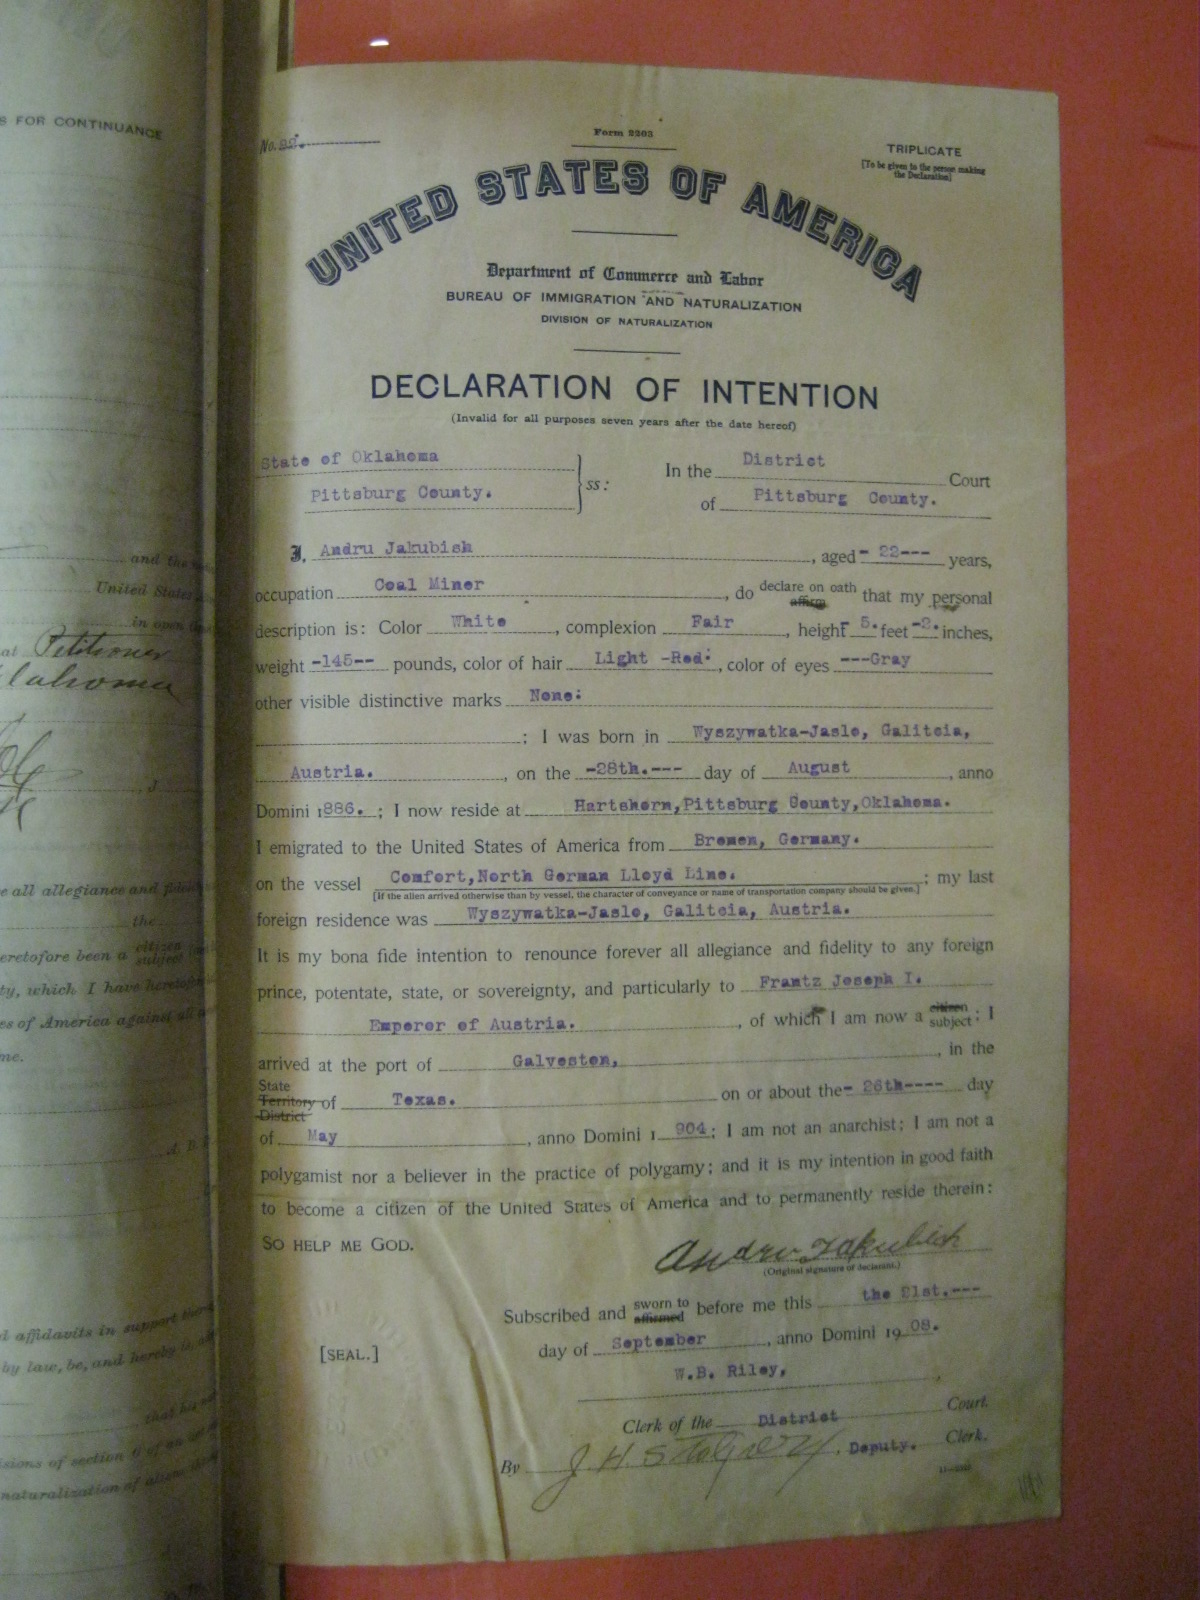 S FOR CONTINUANCE
and the
United States
in open
at Petitioner
lahoma
J
e all allegiance and fidelity
the
eretofore been a citizen subject
ty, which I have heretofore
es of America against all
me.
d affidavits in support thereof
by law, be, and hereby is,
that he
isions of section 6 of an
naturalization of aliens
No. 22.
Form 2203
TRIPLICATE
[To be given to the person making
the Declaration]
UNITED STATES OF AMERICA
Department of Commerce and Labor
BUREAU OF IMMIGRATION AND NATURALIZATION
DIVISION OF NATURALIZATION
DECLARATION OF INTENTION
(Invalid for all purposes seven years after the date hereof)
State of Oklahoma
Pittsburg County.
ss:
In the District Court
of Pittsburg County.
I, Andru Jakubish, aged - 22--- years,
occupation Coal Miner, do declare on oath affirm that my personal
description is: Color White, complexion Fair, height- 5. feet -2. inches,
weight -145-- pounds, color of hair Light -Red:, color of eyes ---Gray
other visible distinctive marks None:
; I was born in Wyszywatka-Jasle, Galitcia,
Austria., on the -28th.--- day of August, anno
Domini 1886. ; I now reside at Hartshorn,Pittsburg County,Oklahoma.
I emigrated to the United States of America from Bremen, Germany.
on the vessel Comfort,North German Lloyd Line. ; my last
[If the alien arrived otherwise than by vessel, the character of conveyance or name of transportation company should be given.]
foreign residence was Wyszywatka-Jasle, Galitcia, Austria.
It is my bona fide intention to renounce forever all allegiance and fidelity to any foreign
prince, potentate, state, or sovereignty, and particularly to Frantz Joseph I.
Emperor of Austria., of which I am now a citizen subject; I
arrived at the port of Galveston,, in the
State Territory District of Texas. on or about the- 26th---- day
of May, anno Domini 1 904; I am not an anarchist; I am not a
polygamist nor a believer in the practice of polygamy; and it is my intention in good faith
to become a citizen of the United States of America and to permanently reside therein:
SO HELP ME GOD.
Andru Jakubish
(Original signature of declarant.)
Subscribed and sworn to affirmed before me this the 21st.---
[SEAL.]
day of September, anno Domini 19 08.
W.B. Riley,
Clerk of the District Court.
By J. H. Deputy. Clerk.